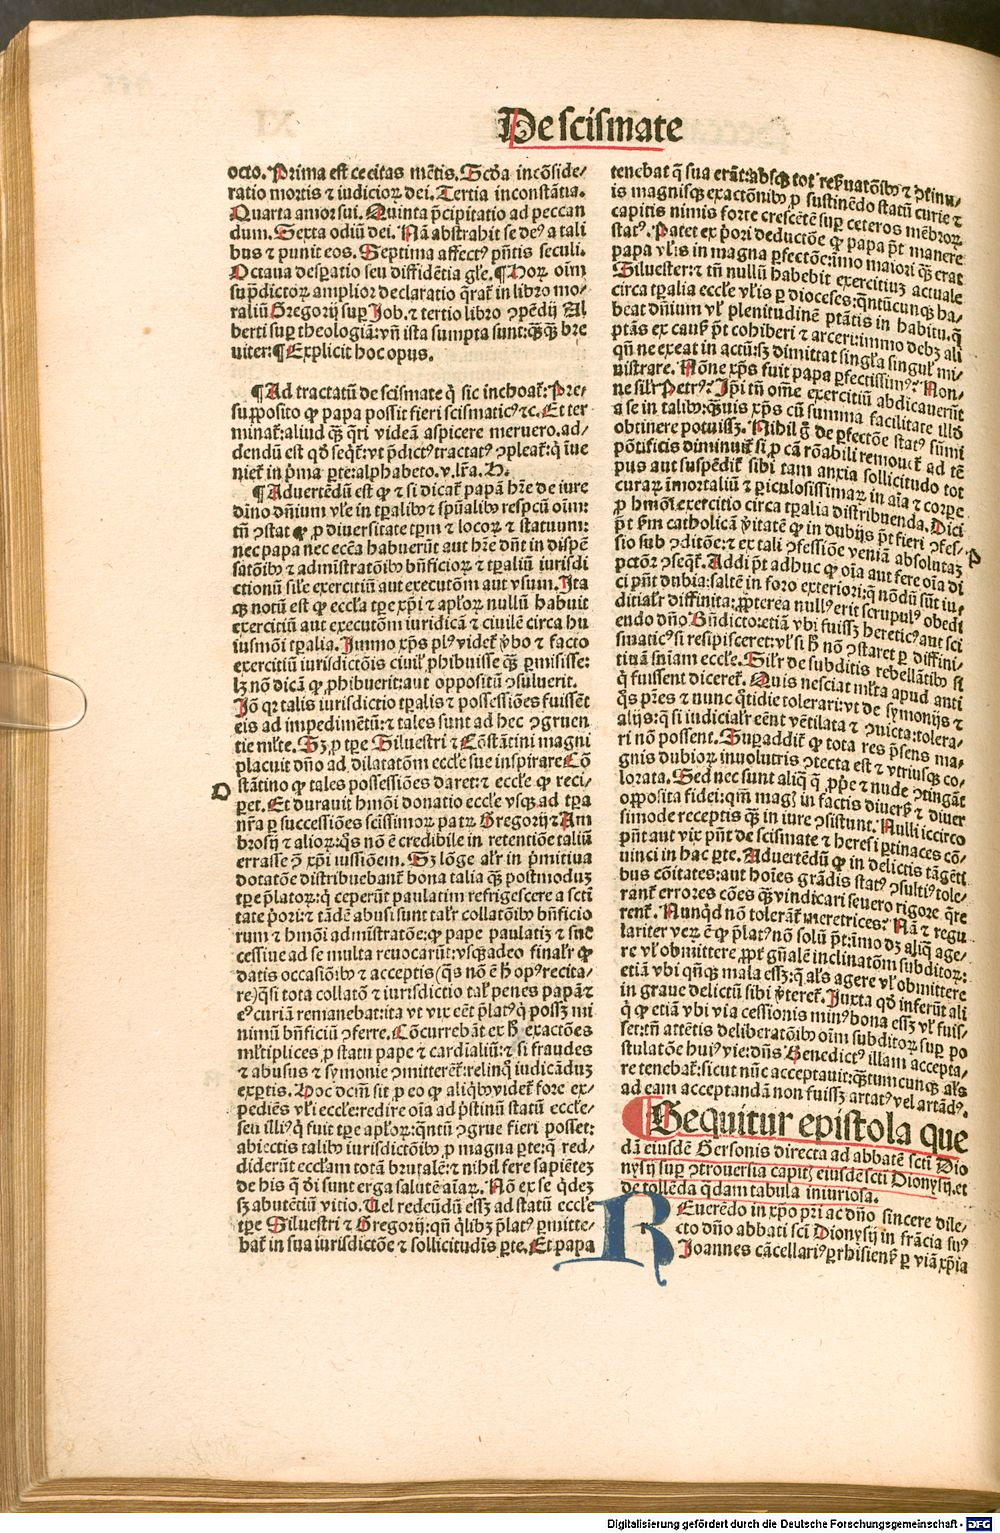 De scismate
octo. Prima est cecitas mẽtis. Scða incõside/
ratio mortis ⁊ iudicioꝝ dei. Tertia inconstãtia.
Quarta amor sui. Quinta p̃cipitatio ad peccan
dum. Sexta odiũ dei. Nã abstrahit se deꝰ a tali
bus ⁊ punit eos. Septima affectꝰ p̃ntis seculi.
Octaua despatio seu diffidẽtia gl̃e. ¶ Hoꝝ oĩm
sup̃dictoꝝ amplior declaratio q̃rat̃ in libro mo/
raliũ Gregorij suꝑ Job. ⁊ tertio libro ꝯpẽdij Al
berti suꝑ theologiã: vñ ista sumpta sunt: q̃ꝫq̃ꝫ bre
uiter: ¶ Explicit hoc opus.
¶ Ad tractatũ de scismate q̇ sic inchoat̃: Pre/
supposito ꝙ papa possit fieri scismaticꝰ ⁊c. Et ter
minat̃: aliud q̃ꝫ q̃ri videã aspicere meruero. ad/
dendũ est qð seqt̃: vt p̃dictꝰ tractatꝰ ꝯpleat̃: q̇ ĩue
niet̃ in p̃ma ꝑte: alphabeto. v. lr̃a. H.
¶ Aduertẽdũ est ꝙ ⁊ si dicat̃ papã hr̃e de iure
diuino dñium vl̃e in tꝑalibꝰ ⁊ spũalibꝰ respcũ oĩm:
tñ ꝯstat ꝙ ꝓ diuersitate tꝑm ⁊ locoꝝ ⁊ statuum:
nec papa nec ecc̃a habuerũt aut hr̃e dñt in dispẽ
satõibꝰ ⁊ admĩstratõibꝰ bñficioꝝ ⁊ tꝑaliũ iurisdi
ctionũ sil̃e exercitiũ aut executõm aut vsum. Ita
q̃ꝫ notũ est ꝙ eccl̃a tꝑe xp̃i ⁊ apl̃oꝝ nullũ habuit
exercitiũ aut executõm iuridicã ⁊ ciuilẽ circa hu
iusmõi tꝑalia. Immo xp̃s plꝰ videt̃ v̾bo ⁊ facto
exercitiũ iurisdictõis ciuil̃ ꝓhibuisse q̃ꝫ ꝑmisisse:
lꝫ nõ dicã ꝙ ꝓhibuerit: aut oppositũ ꝯsuluerit.
Jõ qꝛ talis iurisdictio tꝑalis ⁊ possessiões fuissẽt
eis ad impedimẽtũ: ⁊ tales sunt ad hec ꝯgruen
tie ml̃te. Sꝫ ꝓ tꝑe Siluestri ⁊ Cõstãtini magni
placuit dño ad dilatatõm eccl̃e sue inspirare Cõ
O
stãtino ꝙ tales possessiões daret: ⁊ eccl̃e ꝙ reci/
ꝑet. Et durauit hmõi donatio eccl̃e vsq̃ꝫ ad tꝑa
nr̃a ꝑ successiões scissimoꝝ patrꝝ Gregorij ⁊ Am
brosij ⁊ alioꝝ: q̃s nõ ẽ credibile in retentiõe taliũ
errasse ꝯ̃ xp̃i iussiõem. Sꝫ lõge al̃r in p̃mitiua
dotatõe distribuebant̃ bona talia q̃ꝫ postmoduꝫ
tꝑe p̃latoꝝ: q̇ ceperũt paulatim refrigescere a scti
tate p̃ori: ⁊ tãdẽ abusi sunt tal̃r collatõibꝰ bñficio
rum ⁊ hmõi admĩstratõe: ꝙ pape paulatiꝫ ⁊ suc
cessiue ad se multa reuocarũt: vsq̃ꝫadeo final̃r ꝙ
datis occasiõibꝰ ⁊ acceptis (q̃s nõ ẽ h̃ opꝰ recita/
re) q̃si tota collatõ ⁊ iurisdictio tal̃ penes papã ⁊
eꝰ curiã remanebat: ita vt vix eẽt p̃latꝰ q̇ possꝫ mi
nimũ bñficiũ ꝯferre. Cõcurrebãt ex h̃ exactões
ml̃tiplices ꝓ statu pape ⁊ cardĩaliũ: ⁊ si fraudes
⁊ abusus ⁊ symonie ꝯmitterẽt̃: relinq̃ iudicãduꝫ
exꝑtis. Hoc dcm̃ sit ꝓ eo ꝙ aliqbꝰ videt̃ fore ex/
pediẽs vl̃i eccl̃e: redire oĩa ad p̃stinũ statũ eccl̃e/
seu illiꝰ q̇ fuit tꝑe apl̃oꝝ: q̃ntũ ꝯgrue fieri posset:
abiectis talibꝰ iurisdictõibꝰ ꝓ magna ꝑte: q̃ red/
diderũt eccl̃am totã brutalẽ: ⁊ nihil fere sapiẽteꝫ
de his q̃ d̃i sunt erga salutẽ aĩaꝝ. Nõ ex se q̇deꝫ
sꝫ abutẽtiũ vitio. Uel redeũdũ essꝫ ad statũ eccl̃e
tꝑe Siluestri ⁊ Gregorij: qñ q̇libꝫ p̃latꝰ ꝑmitte/
bat̃ in sua iurisdictõe ⁊ sollicitudĩs ꝑte. Et papa
tenebat q̃ sua erãt: absq̃ꝫ tot res̃uatõibꝰ ⁊ ꝯtinu/
is magnisq̃ꝫ exactõnibꝰ ꝓ sustinẽdo statũ curie ⁊
capitis nimis forte crescẽtẽ suꝑ ceteros mẽbroꝝ
statꝰ. Patet ex p̃ori deductõe ꝙ papa p̃t manere
papa vl̃is in magna ꝑfectõe: imo maiori q̃ꝫ erat
Siluester: ⁊ tñ nullũ habebit exercitiuꝫ actuale
circa tꝑalia eccl̃e vl̃is ꝑ dioceses: q̃ntũcunq̃ꝫ ha/
beat dñium vl̃ plenitudinẽ ptãtis in habitu. q̃
ptãs ex caus̃ p̃t cohiberi ⁊ arceri: immo debꝫ ali
qñ ne exeat in actũ: sꝫ dimittat singl̃a singul̃ mi/
nistrare. Nõne xp̃s fuit papa ꝑfectissimꝰ? Non/
ne sil̃r Petrꝰ? Ip̃i tñ om̃e exercitiũ abdicauerũt
a se in talibꝰ: q̃ꝫuis xp̃s cũ summa facilitate illð
obtinere potuissꝫ. Nihil g̃ de ꝑfectõe statꝰ summi
põtificis diminuit̃ si ꝓ cã rõabili remouet̃ ad tẽ
pus aut suspẽdit̃ sibi tam anxia sollicitudo tot
curaꝝ ĩmortaliũ ⁊ ꝑiculosissimaꝝ in aĩa ⁊ corꝑe
ꝓ hmõi exercitio circa tꝑalia distribuenda. Dici
P
p̃t s̃m catholicã v̾itatẽ ꝙ in dubijs p̃t fieri ꝯfes/
sio sub ꝯditõe: ⁊ ex tali ꝯfessiõe veniã absolutaꝫ
pctõr ꝯseqt̃. Addi p̃t adhuc ꝙ oĩa aut fere oĩa di
ci pñt dubia: saltẽ in foro exteriori: q̃ nõdũ sũt iu/
ditial̃r diffinita: ꝓpterea nullꝰ erit scrupulꝰ obedi
endo dño Bñdicto: etiã vbi fuissꝫ hereticꝰ aut sci
smaticꝰ si resipisceret: vl̃ si h̃ nõ ꝯstaret ꝑ diffini/
tiuã sñiam eccl̃e. Sil̃r de subditis rebellãtibꝰ si
q̇ fuissent diceret̃. Quis nesciat ml̃ta apud anti
q̃s pr̃es ⁊ nunc q̃tidie tolerari: vt de symonijs ⁊
alijs: q̃ si iudicial̃r eẽnt vẽtilata ⁊ ꝯuicta: tolera/
ri nõ possent. Suꝑaddit̃ ꝙ tota res p̃sens ma/
gnis dubioꝝ inuolutris ꝯtecta est ⁊ vtriusq̃ꝫ co/
lorata. Sed nec sunt aliq̃ q̃ ꝓp̃e ⁊ nude ꝯtingãt
opposita fidei: qm̃ magꝭ in factis diuers̃ ⁊ diuer
simode receptis q̃ꝫ in iure ꝯsistunt. Nulli iccirco
pñt aut vix pñt de scismate ⁊ heresi ꝑtinaces cõ/
uinci in hac ꝑte. Aduertẽdũ ꝙ in delictis tãgẽti
bus cõitates: aut hoĩes grãdis statꝰ ꝯsultiꝰ tole/
rant̃ errores cões q̃ꝫ vindicari seuero rigore q̃re
rent̃. Nunq̇d nõ tolerãt̃ meretrices? Nã ⁊ regu
lariter verꝝ ẽ ꝙ p̃latꝰ nõ solũ p̃t: ĩmo dꝫ aliq̃ age/
re vl̃ obmittere ꝓpt̃ gñalẽ inclinatõm subditoꝝ:
etiã vbi q̃nq̃ꝫ mala essꝫ: q̃ al̃s agere vl̃ obmittere
in graue delictũ sibi v̾teret̃. Juxta qð inferũt ali
q̇ ꝙ etiã vbi via cessionis minꝰ bona essꝫ vl̃ fuis/
set: tñ attẽtis deliberatõibꝰ oĩm subditoꝝ suꝑ po
stulatõe huiꝰ vie: dñs Benedictꝰ illam accepta/
re tenebat̃: sicut nũc acceptauit: q̃ꝫtumcunq̃ꝫ al̃s
ad eam acceptandã non fuissꝫ artatꝰ vel artãdꝰ.
¶ Sequitur epistola que
dã eiusdẽ Gersonis directa ad abbatẽ scti Dio
nysij suꝑ ꝯtrouersia capitꝭ eiusdẽ scti Dionysij. et
de tollẽda q̃dam tabula iniuriosa.
REuerẽdo in xp̃o pri ac dño sincere dile/
cto dño abbati sci Dionysij in frãcia suꝰ
Joannes cãcellariꝰ ꝑrhisieñ ꝑ viã xp̃ia
Digitalisierung gefördert durch die Deutsche Forschungsgemeinschaft - DFG